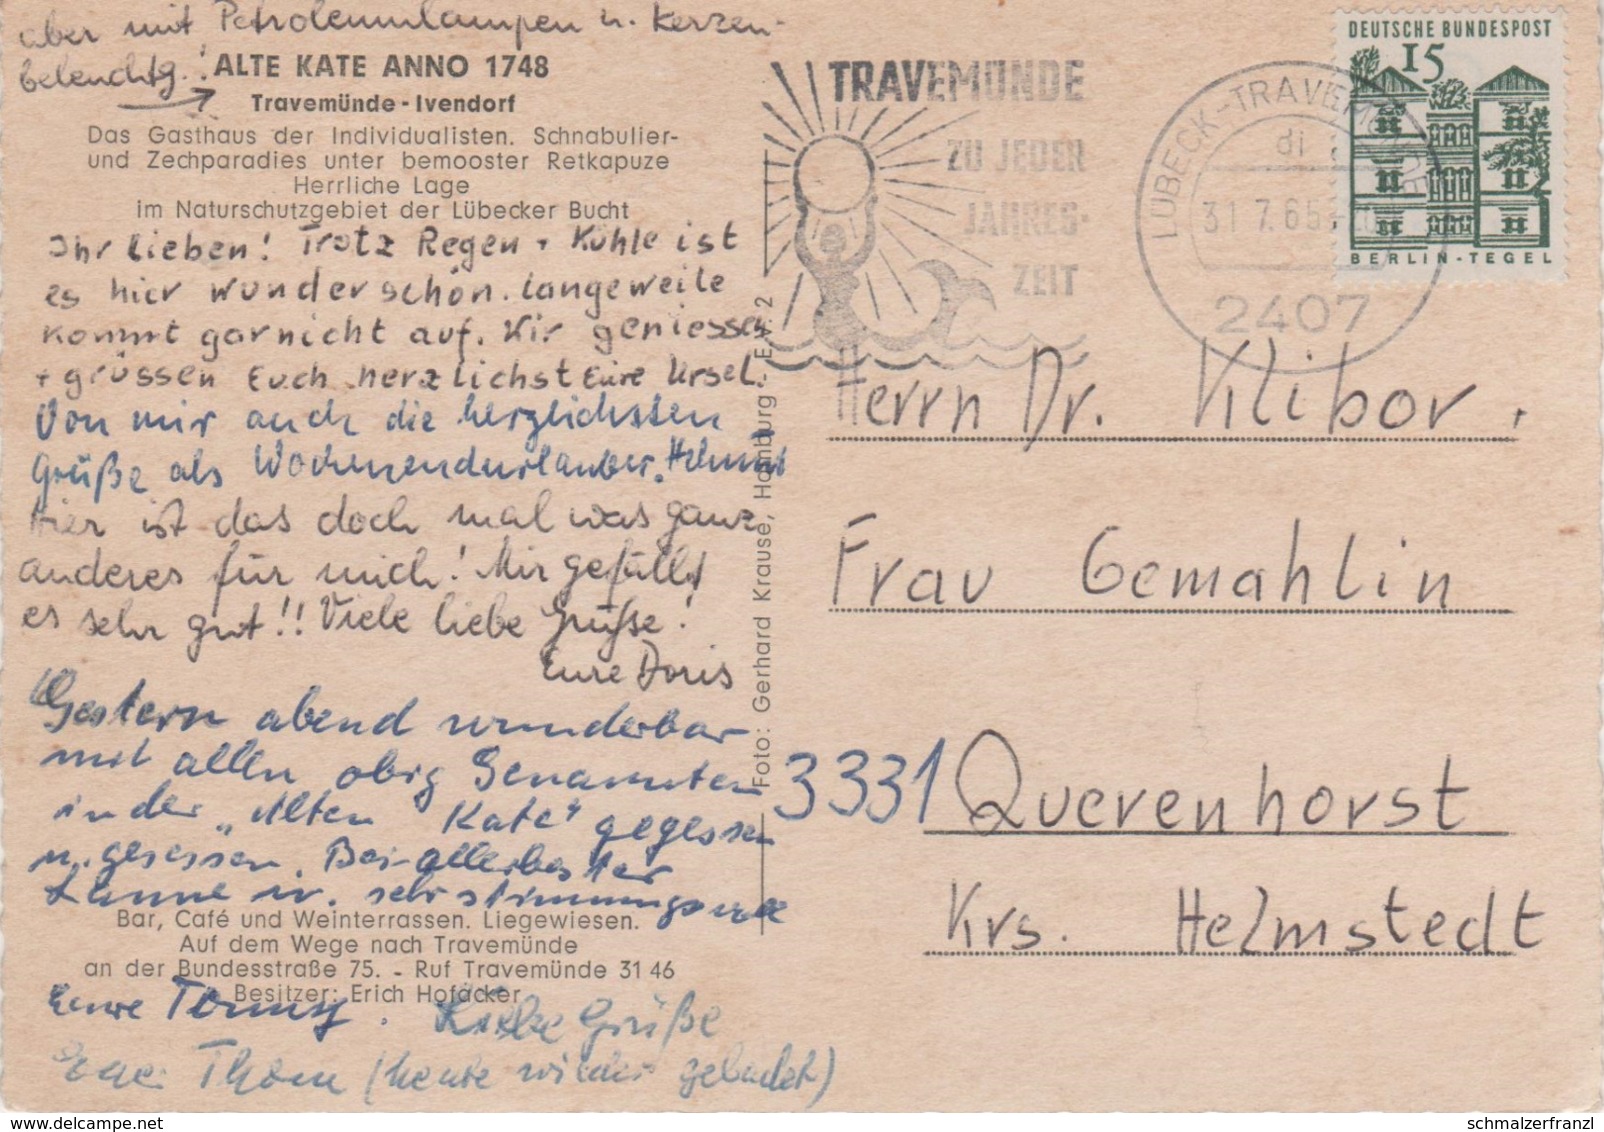 aber mit Petroleumlampen u. Kerzen-
beleuchtg.!
ALTE KATE ANNO 1748
Travemünde-Ivendorf
Das Gasthaus der Individualisten. Schnabulier-
und Zechparadies unter bemooster Retkapuze
Herrliche Lage
im Naturschutzgebiet der Lübecker Bucht
Ihr Lieben! Trotz Regen + Kühle ist
es hier wunderschön. Langeweile
kommt garnicht auf. Wir geniessen
+ grüssen Euch herzlichst Eure Ursel.
Von mir auch die herzlichsten
Grüße als Wochenendurlauber. Helmut
Hier ist das doch mal was ganz
anderes für mich! Mir gefällt
es sehr gut!! Viele liebe Grüße!
Eure Doris
Gestern abend wunderbar
mit allen obig Genannten
in der "Alten Kate" gegessen
u. gesessen. Bei allerbester
Laune u. sehr stimmungsvoll
Bar, Café und Weinterrassen. Liegewiesen.
Auf dem Wege nach Travemünde
an der Bundesstraße 75. - Ruf Travemünde 31 46
Besitzer: Erich Hofäcker
Eure Tommy. Liebe Grüße
Euer Thom (heute wieder gebadet)
Foto: Gerhard Krause, Hamburg - E.V. 2
TRAVEMÜNDE
ZU JEDER
JAHRES-
ZEIT
LÜBECK-TRAVEMÜNDE
di
31.7.65
2407
DEUTSCHE BUNDESPOST
15
BERLIN-TEGEL
Herrn Dr. Klibor,
Frau Gemahlin
3331 Querenhorst
Krs. Helmstedt
www.delcampe.net
schmalzerfranzl